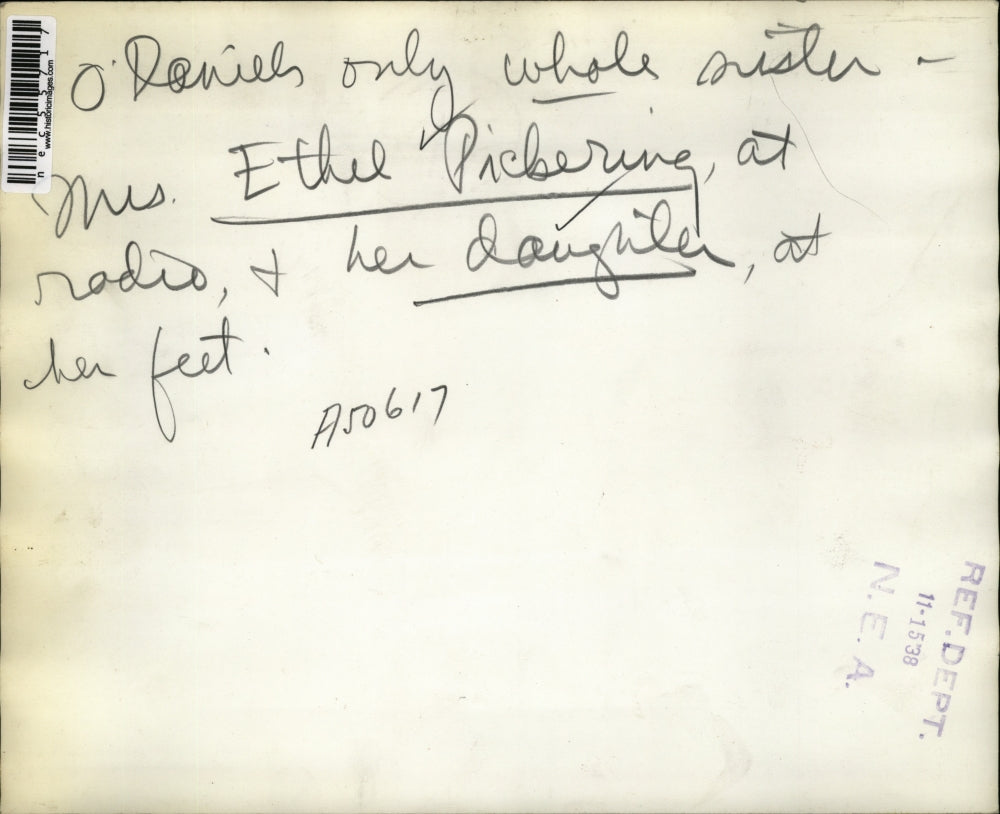 O'Daniels only whole sister -
Mrs. Ethel Pickering, at
radio, & her daughter, at
her feet.
A50617
REF. DEPT.
11-15 38
N. E. A.
www.historicimages.com
nec55717